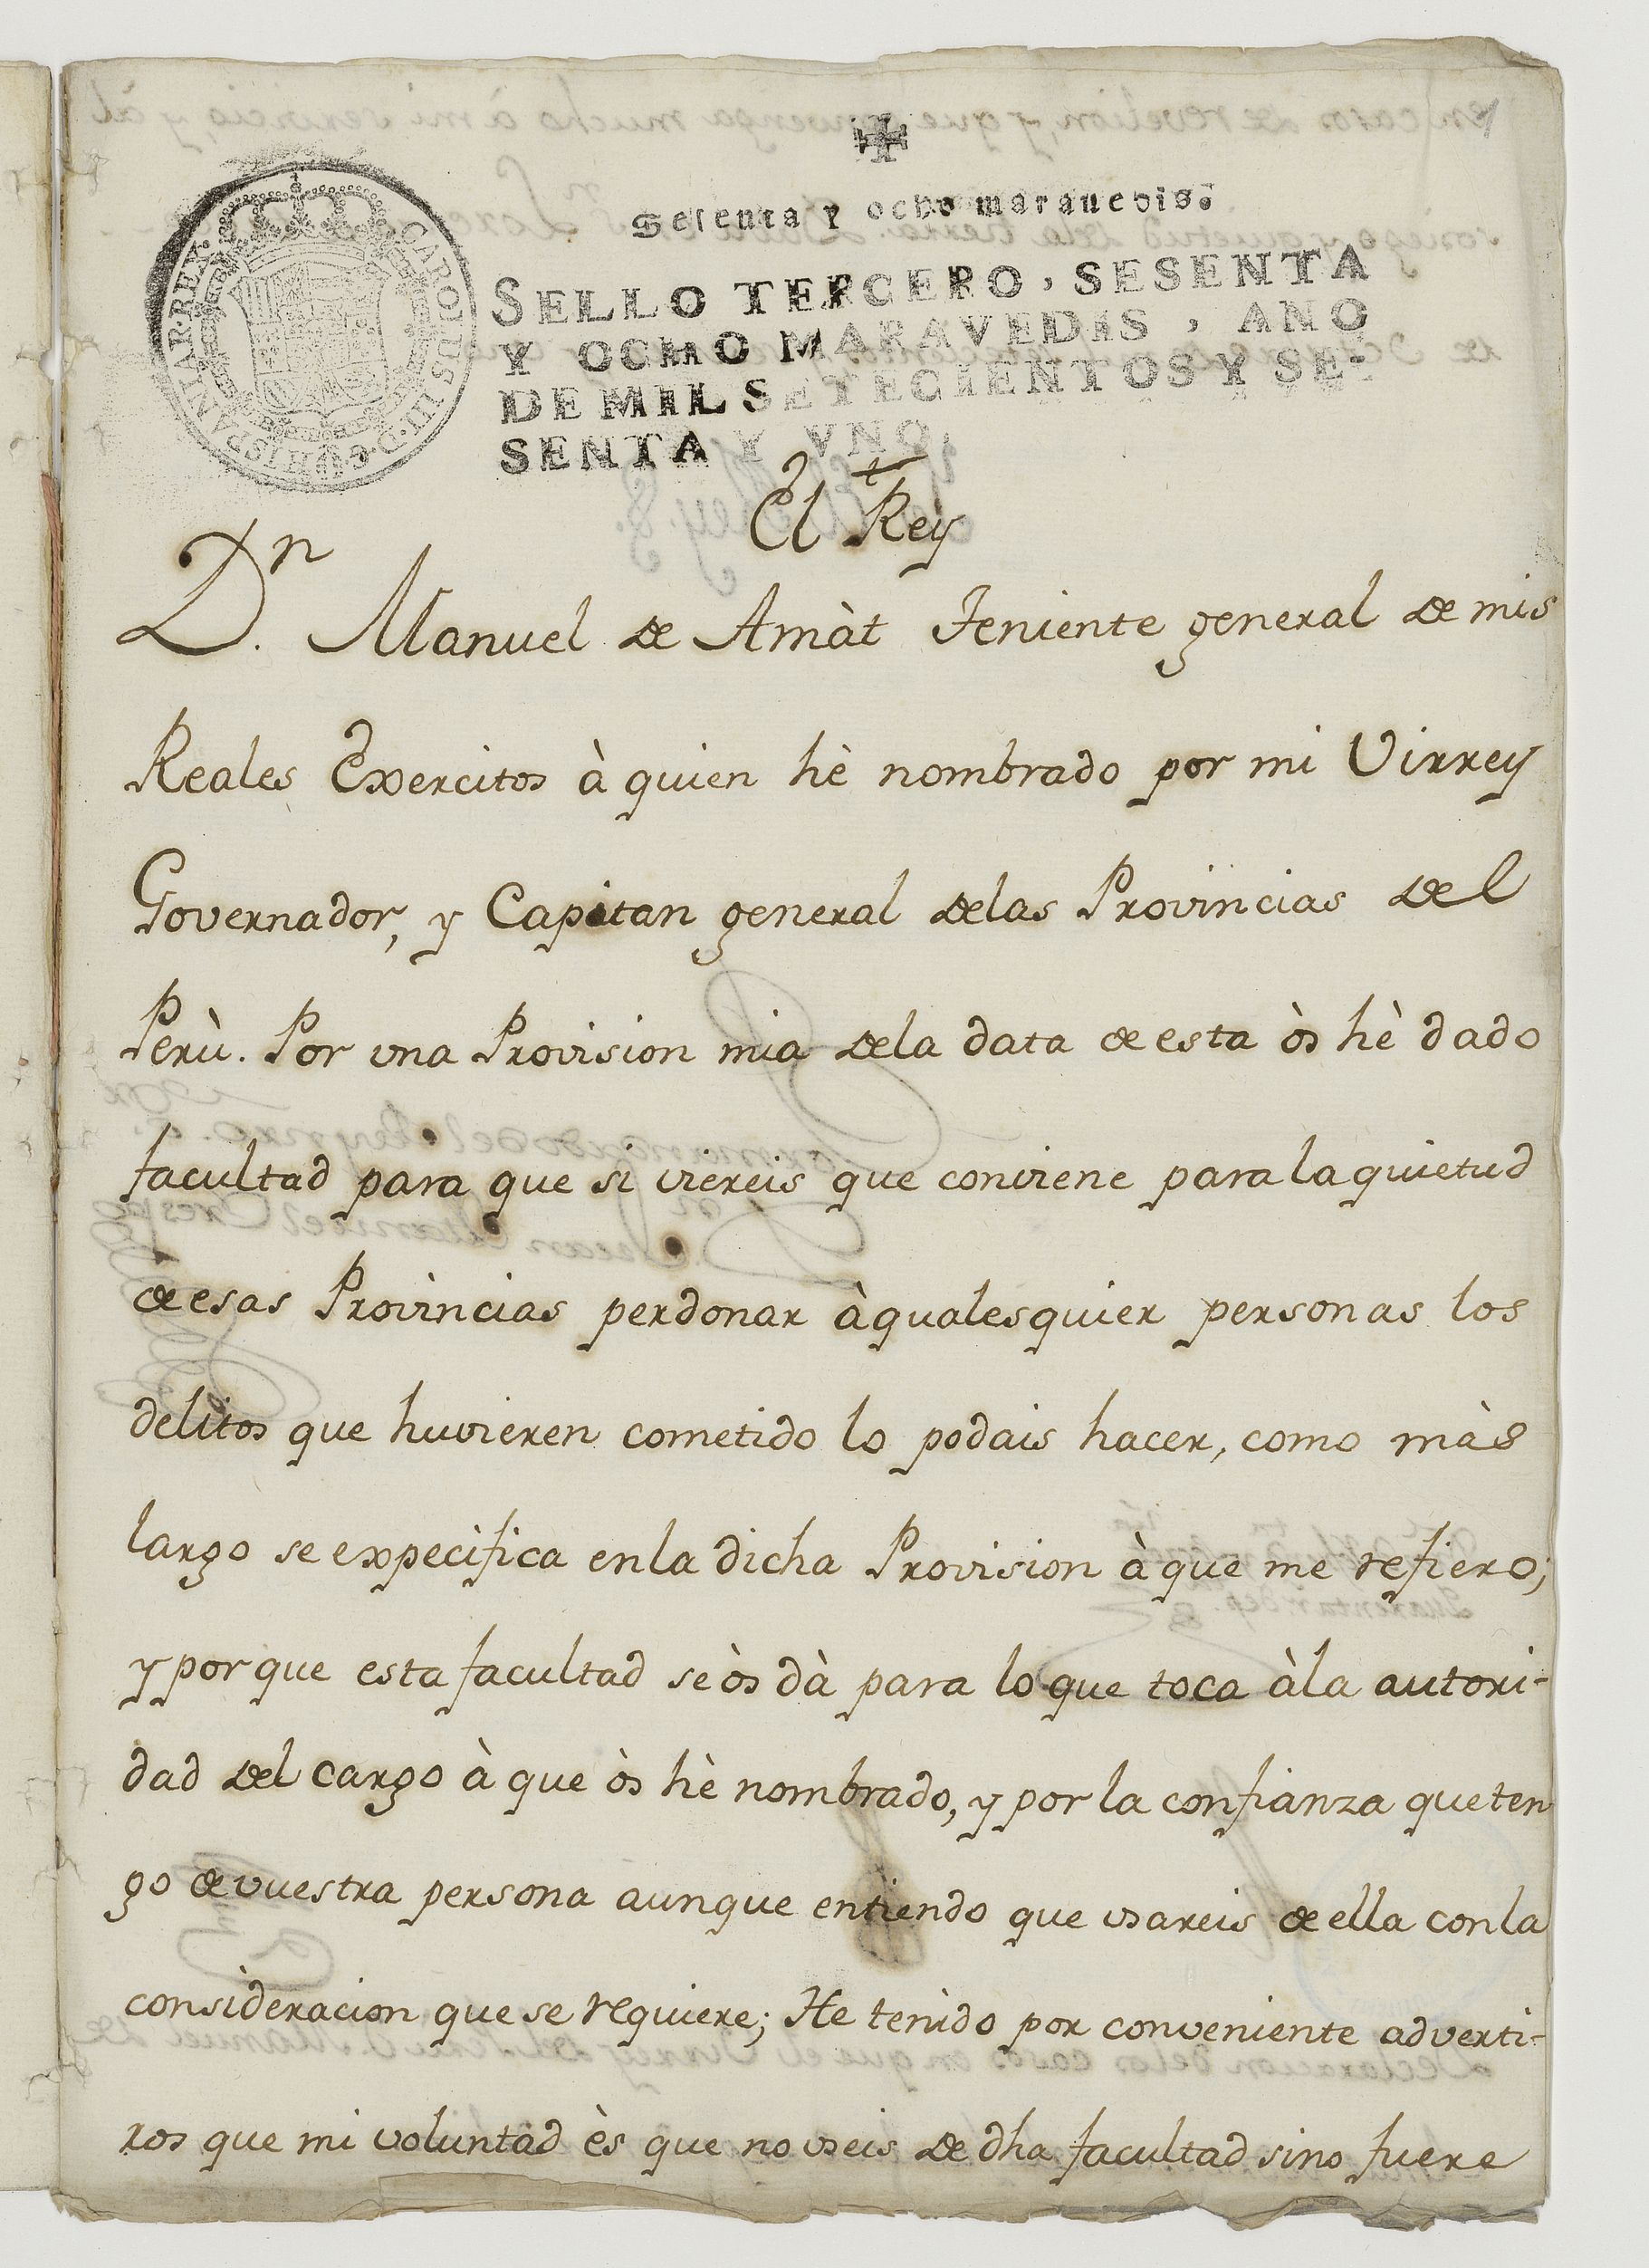 Sesenta y ocho marauedis.
SELLO TERCERO, SESENTA
Y OCHO MARAVEDIS, AÑO
DE MIL SETECIENTOS Y SE-
SENTA Y VNO.
CAROLUS III D. G. HISPANIAR. REX.
El Rey
Dn. Manuel de Amàt Teniente general de mis
Reales Exercitos à quien hè nombrado por mi Virrey
Governador, y Capitan general delas Provincias del
Perù. Por vna Provision mia dela data de esta òs hè dado
facultad para que si viereis que conviene para la quietud
de esas Provincias perdonar àqualesquier personas los
delitos que huvieren cometido lo podais hacer, como màs
largo se expecifica enla dicha Provision à que me refiero;
y por que esta facultad se òs dà para lo que toca àla autori-
dad del cargo à que òs hè nombrado, y por la confianza que ten
go de vuestra persona aunque entiendo que vsareis de ella conla
consideracion que se requiere; He tenido por conveniente adverti-
ros que mi voluntad ès que no vseis de dha facultad sino fuere